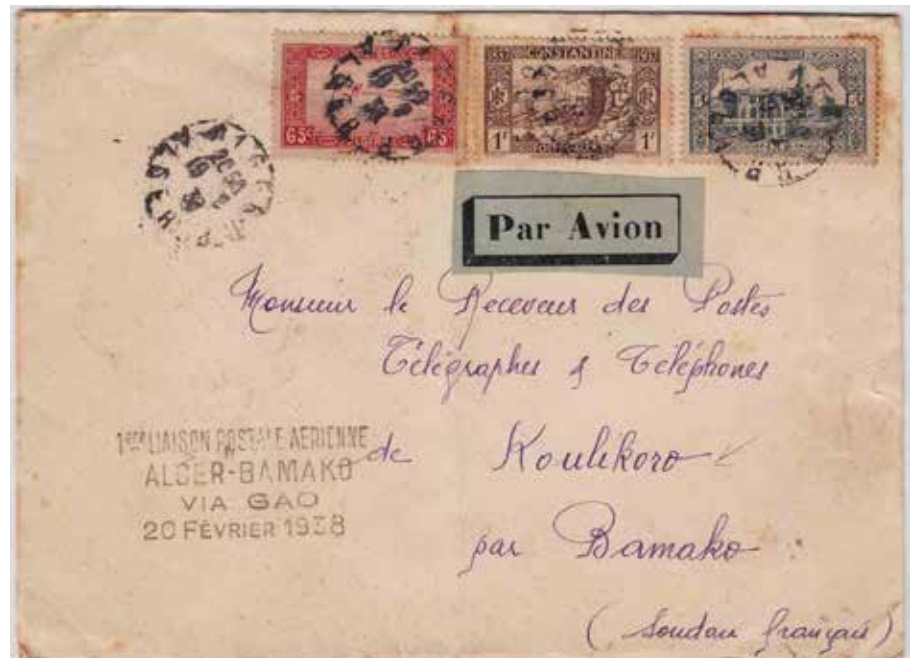 65c 65c
1837 CONSTANTINE 1937
1F 1F
ALGER R.P.
ALGER
Par Avion
Monsieur le Receveur des Postes
Télégraphes & Téléphones
de Koulikoro
par Bamako
(Soudan français)
1ERE LIAISON POSTALE AERIENNE
ALGER-BAMAKO
VIA GAO
20 FÉVRIER 1938